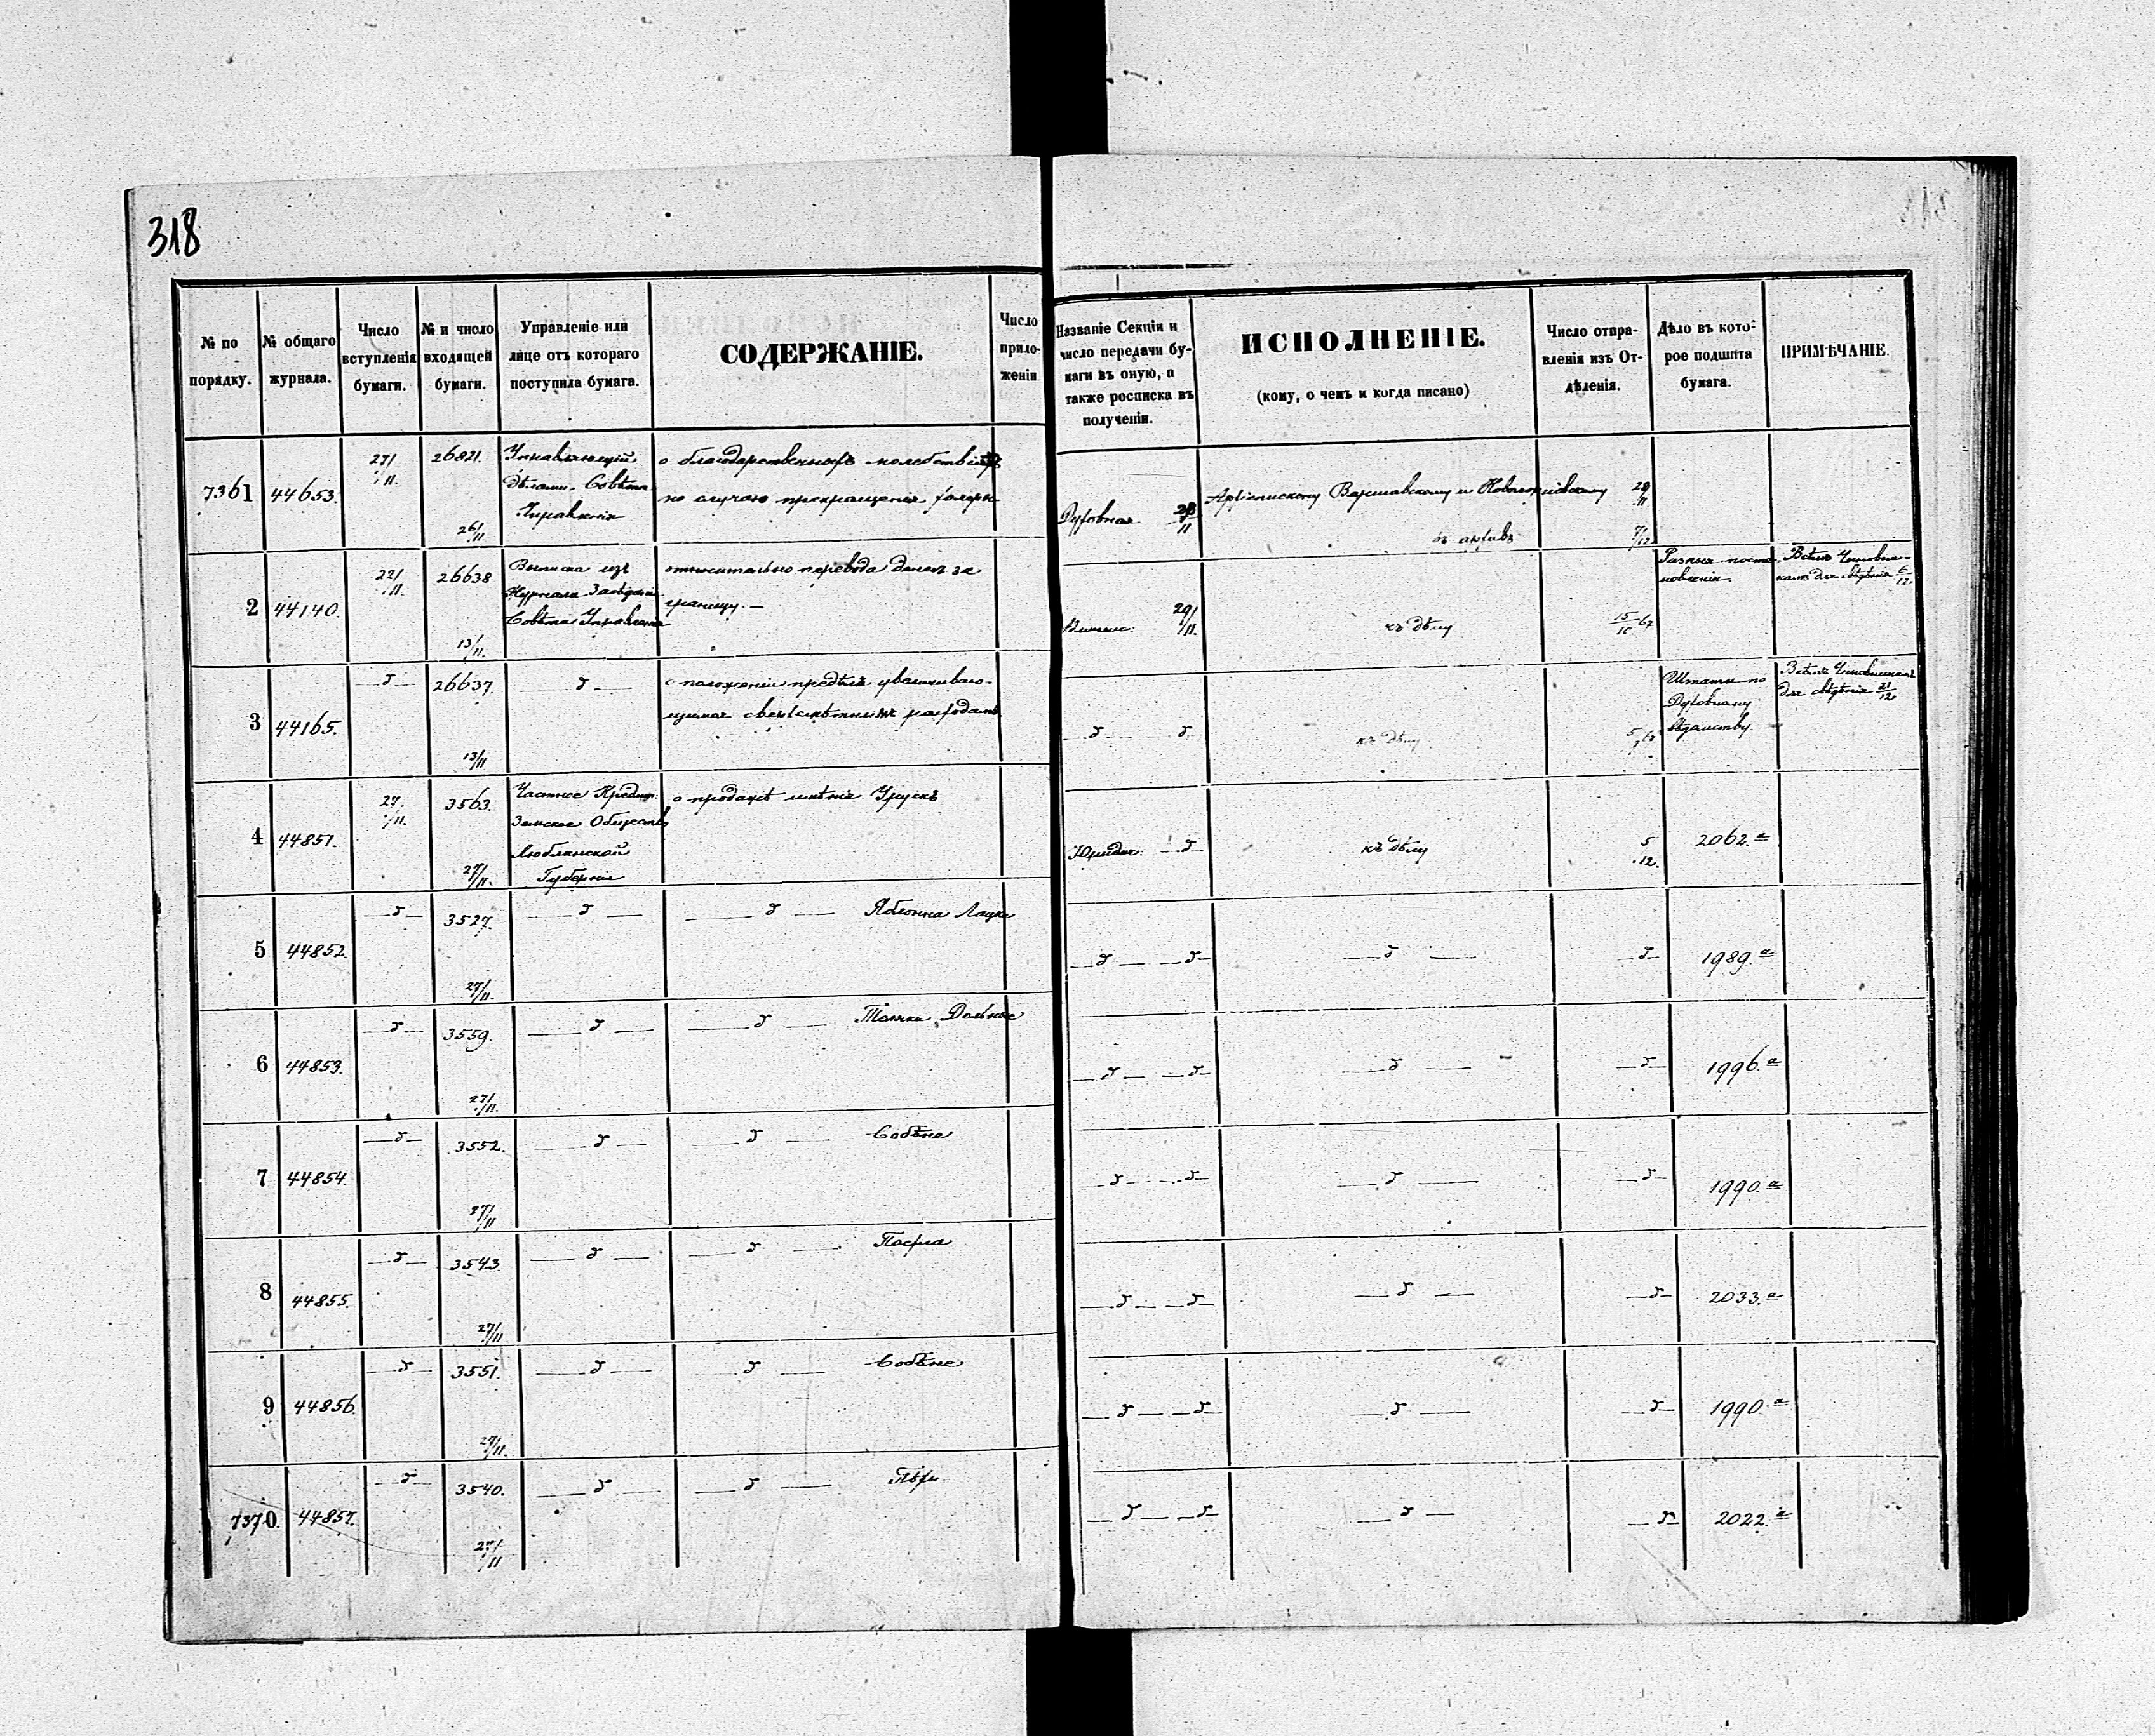 318
№ по порядку.
№ общаго журнала.
Число вступленія бумаги.
№ и число входящей бумаги.
Управленіе или лице отъ котораго поступила бумага.
СОДЕРЖАНІЕ.
Число приложеній
Названіе Секціи и число передачи бумаги въ оную, а также росписка въ полученіи.
ИСПОЛНЕНІЕ.
(кому, о чемъ и когда писано)
Число отправленія изъ Отдѣленія.
Дѣло въ которое подшита бумага.
ПРИМѢЧАНІЕ.
7361 44653. 27/11. 26821. 26/11
Управляющій
дѣлами Совѣта
Управленія
о благодарственныхъ молебствіяхъ
по случаю прекращенія холеры
Духовная 28/11
Архіепископу Варшавскому и Новогеоргіевскому 28/11
въ архивъ 7/12
2 44140. 22/11. 26638 13/11.
Выписка изъ
Журнала Засѣданія
Совѣта Управленія
относительно перевода денегъ за
границу. —
29/11.
къ дѣлу
15/10 67
Разныя поста-
новленія
Всѣмъ Чиновни-
камъ для свѣдѣнія 6/12
3 44165. — д — 26637. 13/11
— д —
о положеніи предѣла увеличиваю-
щимся сверхсмѣтнымъ расходамъ
— д — д
къ дѣлу
Штаты по
Духовному
вѣдомству.
Всѣмъ Чиновникамъ
для свѣдѣнія 21/12
4 44851. 27/11. 3563. 27/11.
Частное Кредит:
Земское Общество
Люблинской
Губерніи
о продажѣ имѣнія Урускъ
Юридич: — д
къ дѣлу
5/12.
2062.а
5 44852. — д — 3527. 27/11.
— д — — д — Яблонна Лацка
— д — — д — — д — — д — 1989.а
6 44853. — д — 3559. 27/11.
— д — — д — Дольные
— д — — д — — д — — д — 1996.а
7 44854. — д — 3552. 27/11
— д — — д — Собѣне
— д — — д — — д — — д — 1990.а
8 44855. — д — 3543. 27/11
— д — — д —
— д — — д — — д — — д — 2033.а
9 44856. — д — 3551. 27/11.
— д — — д — Собѣне
— д — — д — — д — — д — 1990.а
7370. 44857. — д — 3540. 27/11
— д — — д —
— д — — д — — д — — д — 2022.а